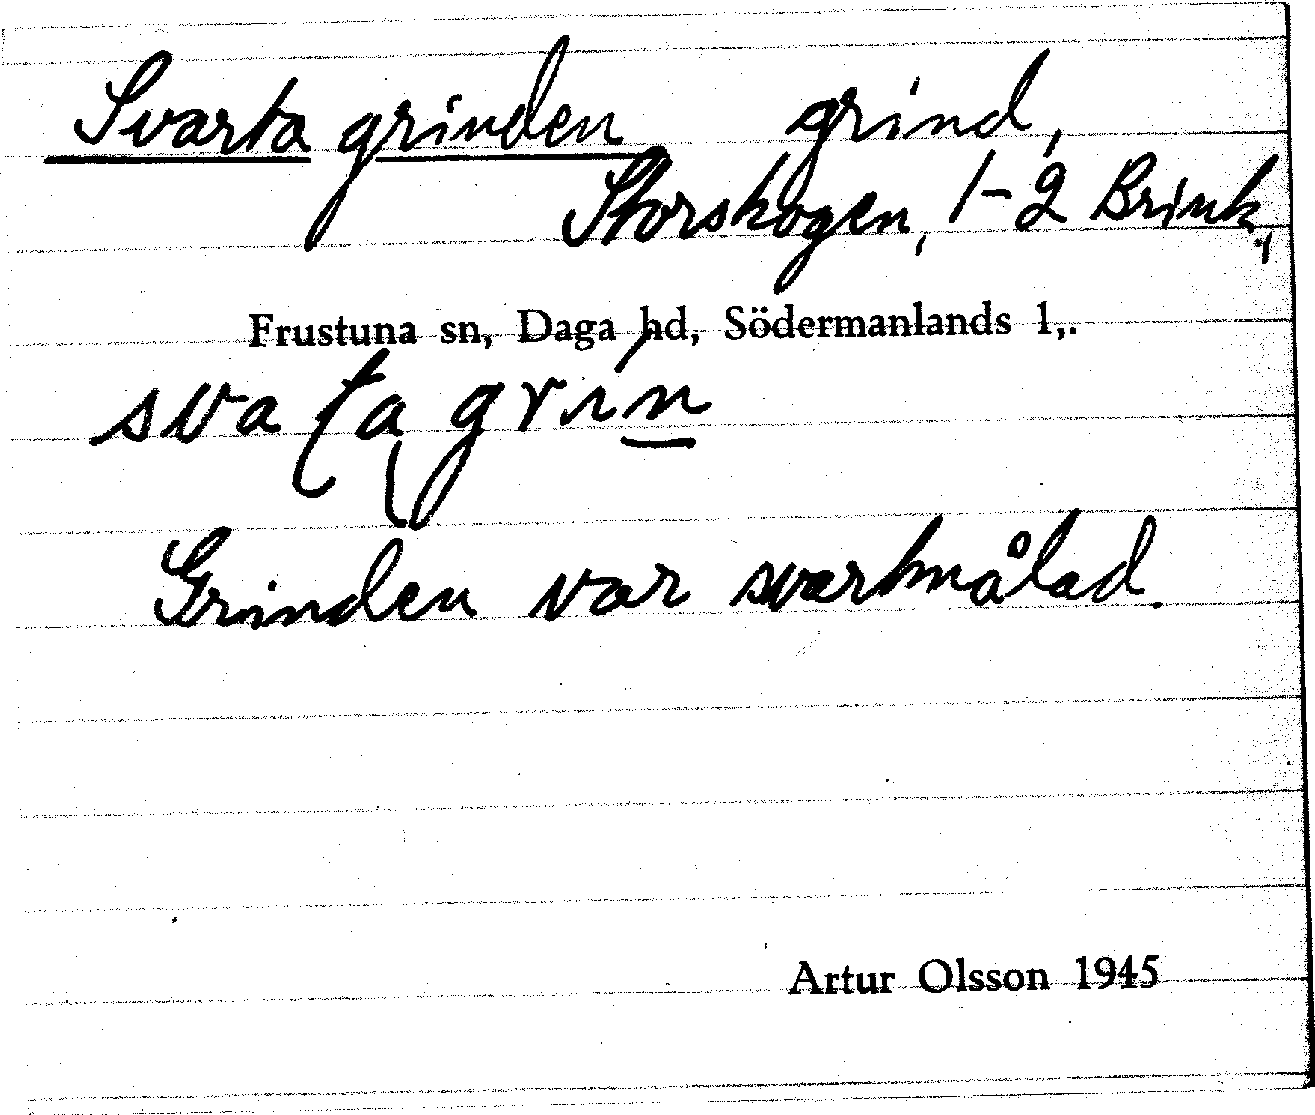 Svarta grinden grind,
Storskogen, 1-2 Brink,
Frustuna sn, Daga hd, Södermanlands l,.
Grinden var svartmålad.
Artur Olsson 1945